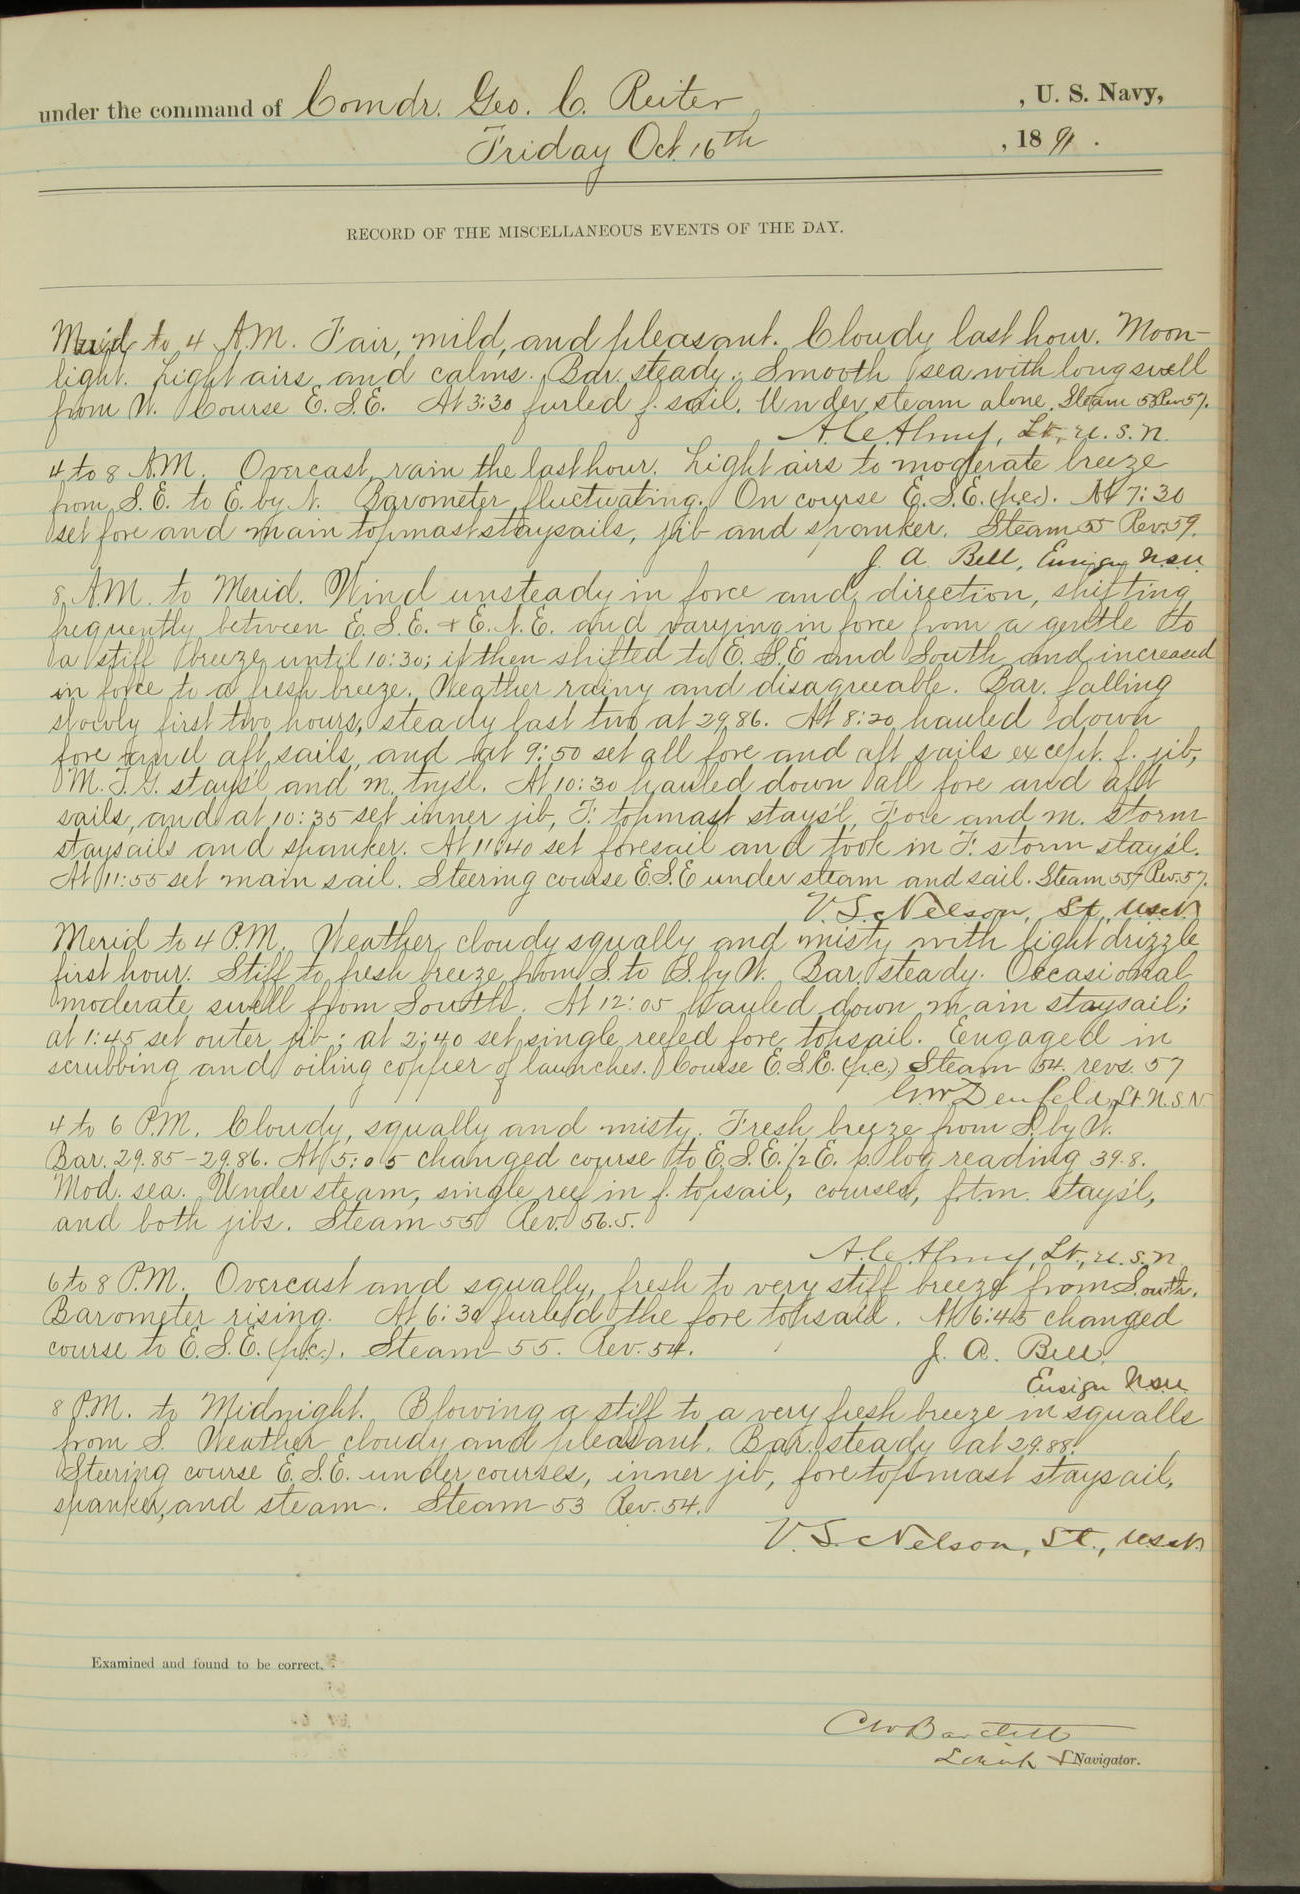 under the command of Comdr. Geo. C. Reiter , U. S. Navy,
Friday Oct. 16th , 1891 .
RECORD OF THE MISCELLANEOUS EVENTS OF THE DAY.
Mid to 4 A.M. Fair, mild, and pleasant. Cloudy last hour. Moon-
light. Light airs and calms. Bar. steady. Smooth sea with long swell
from W. Course E.S.E. At 3:30 furled f. sail. Under steam alone. Steam 53 Rev 57.
A. C. Almy, Lt., U.S.N.
4 to 8 A.M. Overcast, rain the last hour. Light airs to moderate breeze
from S.E. to E. by N. Barometer fluctuating. On course E.S.E. (p.c.). At 7:30
set fore and main topmast staysails, jib and spanker. Steam 55 Rev. 59.
J. A. Bell, Ensign U.S.N.
8 A.M. to Merid. Wind unsteady in force and direction, shifting
frequently between E.S.E. + E.N.E. and varying in force from a gentle to
a stiff breeze until 10:30; it then shifted to E.S.E and South and increased
in force to a fresh breeze. Weather rainy and disagreeable. Bar. falling
slowly first two hours, steady last two at 29.86. At 8:20 hauled down
fore and aft sails, and at 9:50 set all fore and aft sails except f. jib,
M.T.G. stays'l and m. trys'l. At 10:30 hauled down all fore and aft
sails, and at 10:35 set inner jib, F. topmast stays'l, Fore and m. storm
staysails and spanker. At 11:40 set foresail and took in F. storm stays'l.
At 11:55 set main sail. Steering course E.S.E under steam and sail. Steam 55+ Rev. 57.
V. S. Nelson, Lt., U.S.N.
Merid to 4 P.M. Weather cloudy squally and misty with light drizzle
first hour. Stiff to fresh breeze from S. to S. by W. Bar. steady. Occasional
moderate swell from South. At 12:05 hauled down main staysail;
at 1:45 set outer jib; at 2:40 set single reefed fore topsail. Engaged in
scrubbing and oiling copper of launches. Course E.S.E. (p.c.) Steam 54. revs. 57
G W Denfeld, Lt. U.S.N.
4 to 6 P.M. Cloudy, squally and misty. Fresh breeze from S. by W.
Bar. 29.85-29.86. At 5:05 changed course to E.S.E. 1/2 E. p. log reading 39.8.
Mod. sea. Under steam, single reef in f. topsail, courses, f.t.m. stays'l,
and both jibs. Steam 55 Rev. 56.5.
A. C. Almy, Lt., U.S.N.
6 to 8 P.M. Overcast and squally, fresh to very stiff breeze from South.
Barometer rising. At 6:30 furled the fore topsail. At 6:45 changed
course to E.S.E. (p.c.). Steam 55. Rev. 54.
J. A. Bell,
Ensign U.S.N.
8 P.M. to Midnight. Blowing a stiff to a very fresh breeze in squalls
from S. Weather cloudy and pleasant. Bar. steady at 29.88.
Steering course E.S.E. under courses, inner jib, fore topmast staysail,
spanker, and steam. Steam 53 Rev. 54.
V. S. Nelson, Lt., U.S.N.
Examined and found to be correct.
C W Bartlett
Lieut & Navigator.